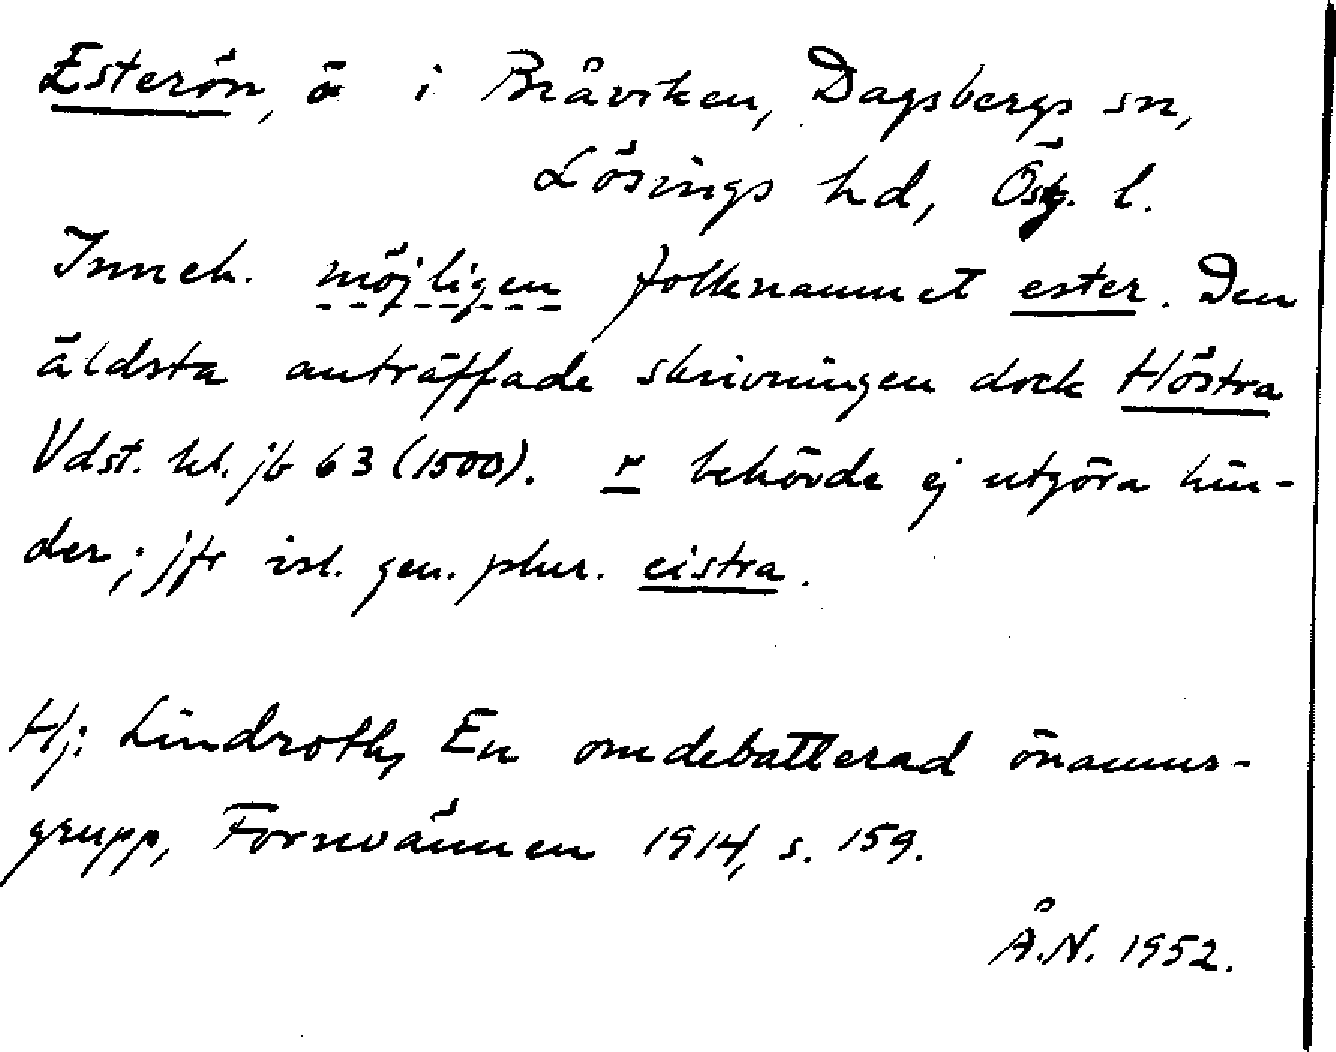 Esterön, ö i Bråviken, Dagsbergs sn,
Lösings hd, Östg. l.
Inneh. möjligen folknamnet ester. Den
äldsta anträffade skrivningen dock Höstra
Vdst. kl. jb 63 (1500). r behövde ej utgöra hin-
der; jfr isl. gen. plur. eistra.
Hj. Lindroth, En omdebatterad önamns-
grupp, Fornvännen 1914, s. 159.
Å.N. 1952.